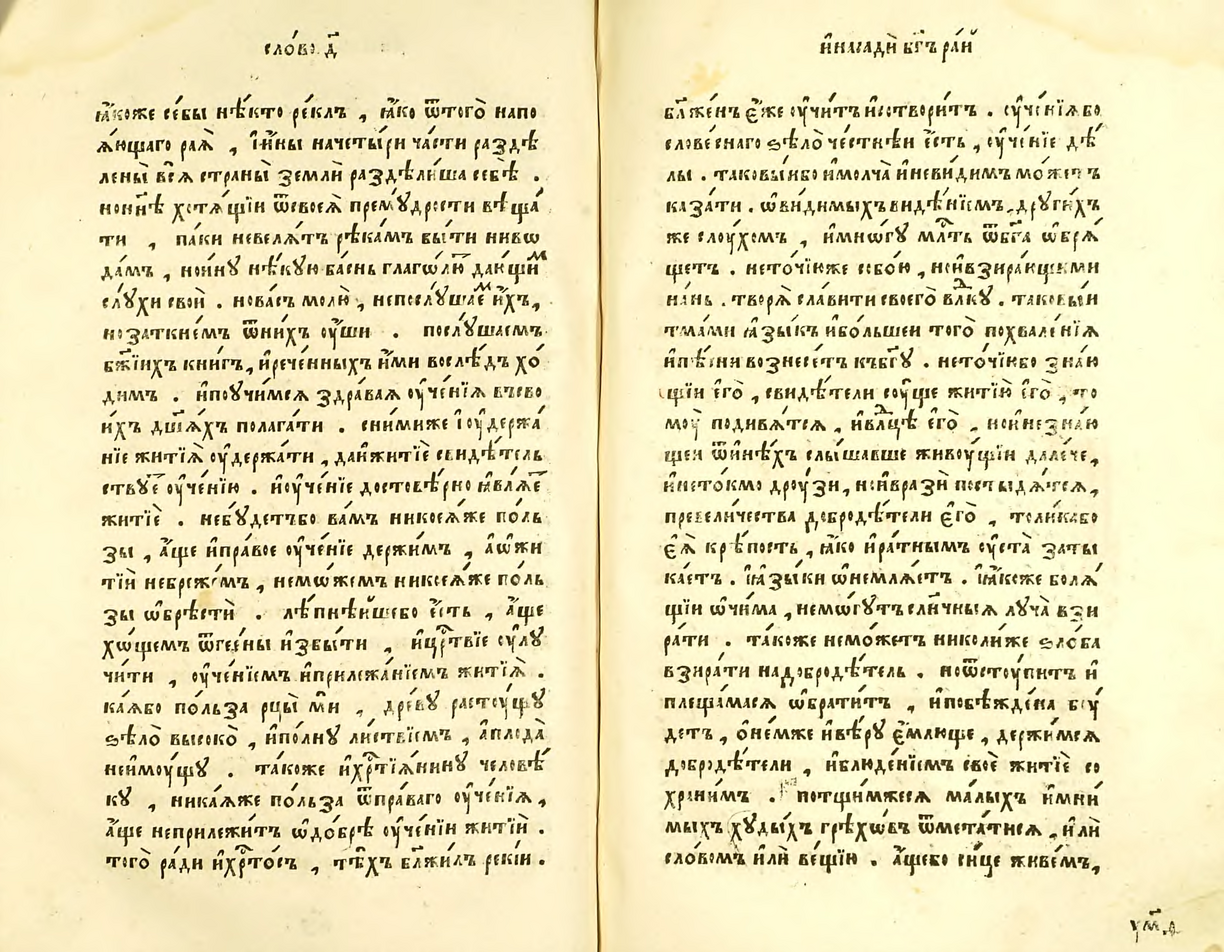 сло́во д҃
ꙗ҆́коже себы̀ нѣ́кто ре́клъ , ꙗ҆́ко ѿтогѡ̀ напо
ѧ҆́ющаго раѧ̀ , і҆и҆́ны начеты́ри ча́сти раздѣ
лены̀ всѧ̀ страны̀ землѝ раздѣли́ша себѣ̀ .
нонн҃ѣ хотѧ́щїи ѿсвоеѧ̀ прему́дрости вѣща́
ти , па́ки невелѧ́тъ рѣка́мъ бы́ти нивѡ
да́мъ , нои҆нꙋ̀ нѣ́кꙋю ба́снь глаго́лю даю́щимъ
слꙋ́хи своѝ . нова́съ молю̀ , непослꙋ́шаемъ и҆́хъ ,
нозаткне́мъ ѿни́хъ оу҆́ши . послꙋ́шаемъ
бж҃їихъ кни́гъ , и҆рече́нныхъ и҆́ми вослѣ́дъ хо́
димъ . и҆поꙋчи́мсѧ здра́ваѧ оу҆че́нїѧ въсво
и́хъ дш҃а́хъ полага́ти . сни́миже і҆оу҆держа́
нїе житїѧ̀ оу҆держа́ти , даи҆житїѐ свидѣ́тель
ствꙋ́етъ оу҆че́нїю . и҆оу҆че́нїе достовѣ́рно ꙗ҆влѧ́етъ
житїѐ . небꙋ́детъбо ва́мъ никоеѧ́же по́ль
зы , а҆́ще и҆пра́вое оу҆че́нїе держи́мъ , а҆ѡ҆жи
тїѝ небреже́мъ , немѡ́жемъ никоеѧ́же по́ль
зы ѡ҆брѣстѝ . лѣпнѣ́йшебо є҆́сть , а҆́ще
хѡ́щемъ ѿгее́ны и҆збы́ти , и҆црⷭ҇твїе оу҆лꙋ
чи́ти , оу҆че́нїемъ и҆прилежа́нїемъ житїѧ̀ .
ка́ѧбо по́льза рцы́ ми , дре́вꙋ растꙋ́щꙋ
ѕѣлѡ̀ высокѡ̀ , и҆по́лнꙋ ли́ствїемъ , а҆плода̀
неимꙋ́щꙋ . та́коже и҆хрⷭ҇тїѧ́нинꙋ человѣ́
кꙋ , ника́ѧже по́льза ѿпра́ваго оу҆че́нїѧ ,
а҆́ще неприлежи́тъ ѡ҆до́брѣ оу҆че́нїи житїѝ .
тогѡ̀ ра́ди и҆хрⷭ҇то́съ , тѣ́хъ бл҃жи́лъ реки́и .
и҆насадѝ бг҃ъ ра́й
бл҃же́нъ є҆́же оу҆чи́тъ и҆сотвори́тъ . оу҆че́нїѧбо
слове́снаго ѕѣлѡ̀ честнѣ́и є҆́сть , оу҆че́нїе дѣ́
лы . таковы́ибо и҆молча̀ и҆неви́димъ мо́жетъ
каза́ти . ѡ҆ви́димыхъ ви́дѣнїемъ , дрꙋги́хъ
же слꙋ́хомъ , и҆мно́гꙋ млⷭ҇ть ѿбг҃а ѡ҆брѧ́
щетъ . нето́чїюже собо́ю , нои҆взира́ющими
на́нь . творѧ̀ сла́вити своего̀ влⷣкꙋ . таковы́и
тма́ми ꙗ҆зы́къ и҆бо́льшеи того̀ похвале́нїѧ
и҆пѣ́сни вознесе́тъ къбг҃ꙋ . нето́чїюбо зна́ю
щїи є҆го̀ , свидѣ́тели сꙋ́ще житїю̀ є҆го̀ , то
мꙋ̀ подивѧ́тсѧ , и҆влⷣцѣ є҆го̀ , нои҆незна́ю
щеи ѿи҆нѣ́хъ слы́шавше живꙋ́щїи дале́че ,
и҆нето́кмо дрꙋ́зи , нои҆вразѝ постыдѧ́тсѧ ,
превели́чества добродѣ́тели є҆го̀ , толи́кабо
є҆ѧ̀ крѣ́пость , ꙗ҆́ко и҆ра́тнымъ оу҆ста̀ заты
ка́етъ . і҆ꙗ҆зы́ки ѡ҆немлѧ́етъ . і҆ꙗ҆́коже болѧ́
щїи ѡ҆чи́ма , немо́гꙋтъ сл҃ничныѧ лꙋча̀ взи
ра́ти . та́коже немо́жетъ николи́же ѕло́ба
взира́ти надобродѣ́тель . ноѿстꙋ́питъ и҆
плеща́масѧ ѡ҆брати́тъ , и҆побѣжде́на бꙋ́
детъ , о҆не́мже и҆вѣ́рꙋ є҆́млюще , держи́мсѧ
добродѣ́тели , и҆блюде́нїемъ своѐ житїѐ со
храни́мъ . потщи́мжесѧ ма́лыхъ и҆мни́
мыхъ хꙋды́хъ грѣхѡ́въ ѿмета́тисѧ , и҆лѝ
сло́вомъ и҆лѝ ве́щїю . а҆́щебо си́це живе́мъ ,
ум҃д